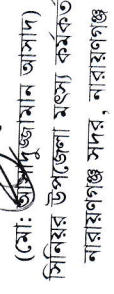 (মো: আসাদুজ্জামান আসাদ)
সিনিয়র উপজেলা মৎস্য কর্মকর্তা
নারায়ণগঞ্জ সদর, নারায়ণগঞ্জ